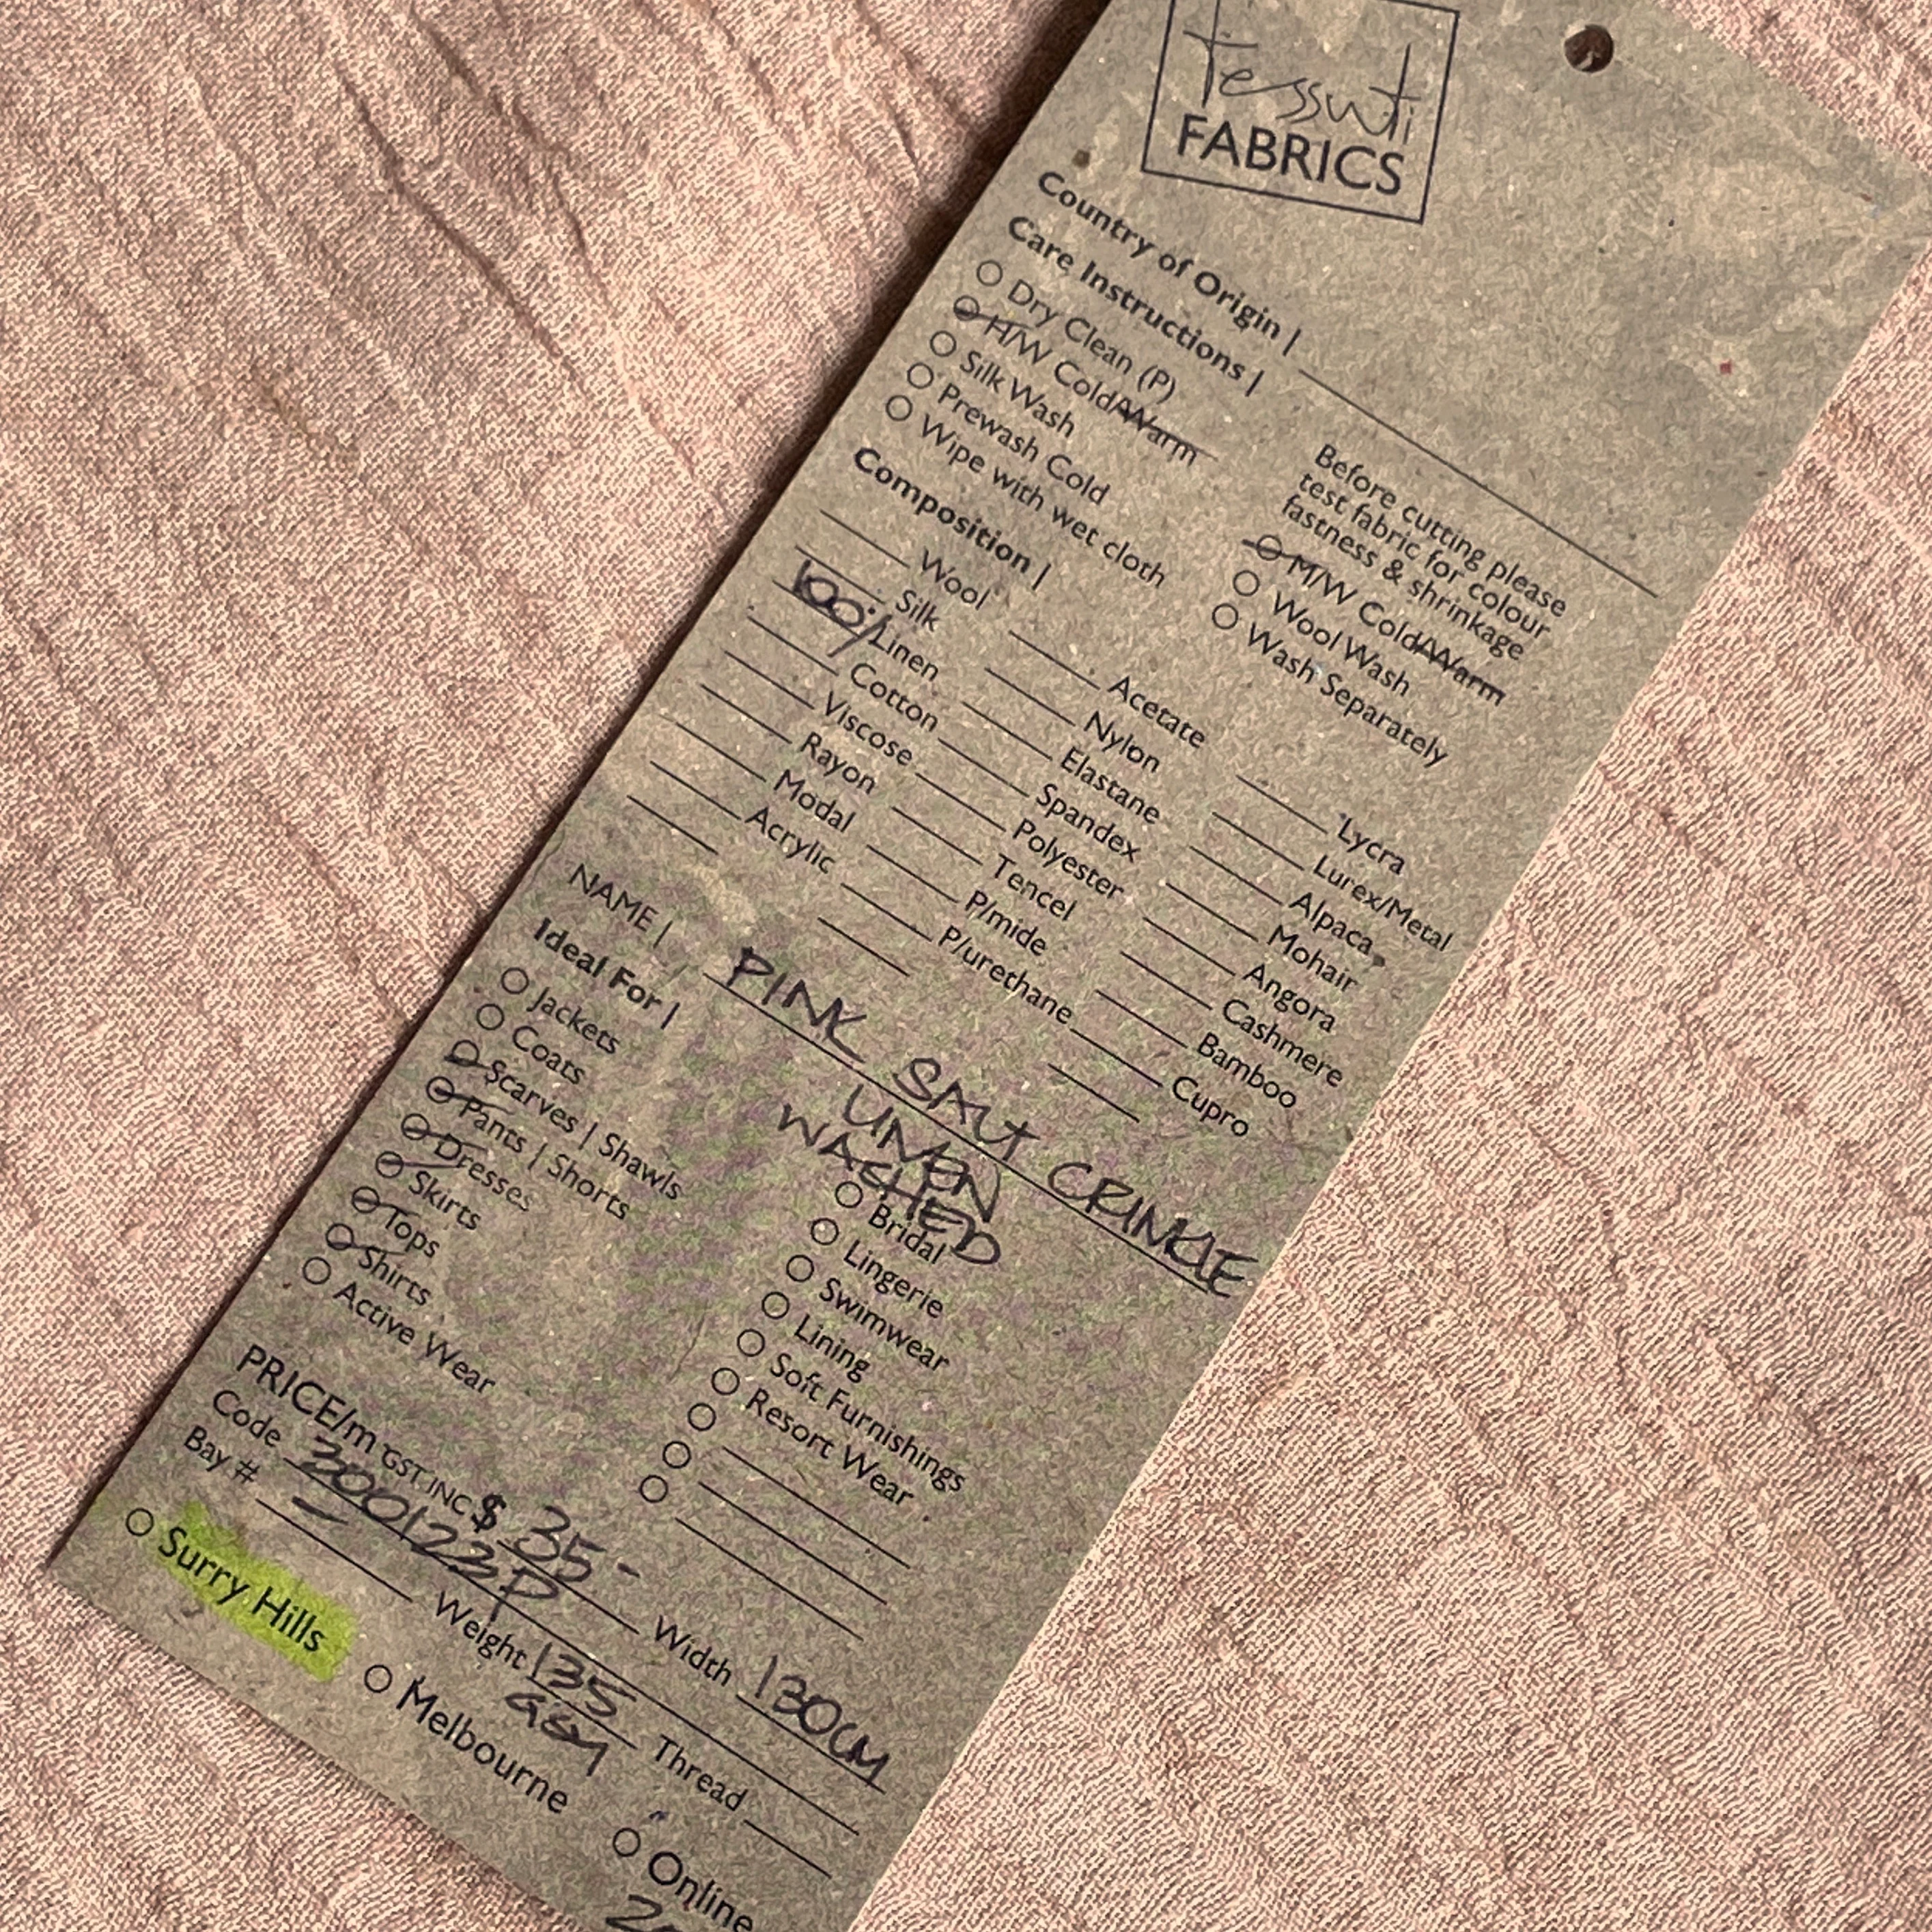 tessuti
FABRICS
Country of Origin |
Care Instructions |
Dry Clean (P)
H/W Cold/Warm
Silk Wash
Prewash Cold
Wipe with wet cloth
Before cutting please
test fabric for colour
fastness & shrinkage
M/W Cold/Warm
Wool Wash
Wash Separately
Composition |
Wool
Silk
100% Linen
Cotton
Viscose
Rayon
Modal
Acrylic
Acetate
Nylon
Elastane
Spandex
Polyester
Tencel
P/mide
P/urethane
Lycra
Lurex/Metal
Alpaca
Mohair
Angora
Cashmere
Bamboo
Cupro
NAME | PINK SALT CRINKLE
WASHED
Ideal For |
Jackets
Coats
Scarves | Shawls
Pants | Shorts
Dresses
Skirts
Tops
Shirts
Active Wear
Bridal
Lingerie
Swimwear
Lining
Soft Furnishings
Resort Wear
PRICE/m GST INC $ 35- Width 130CM
Code 200122P
Bay # – Weight 135 GSM Thread
Surry Hills Melbourne Online